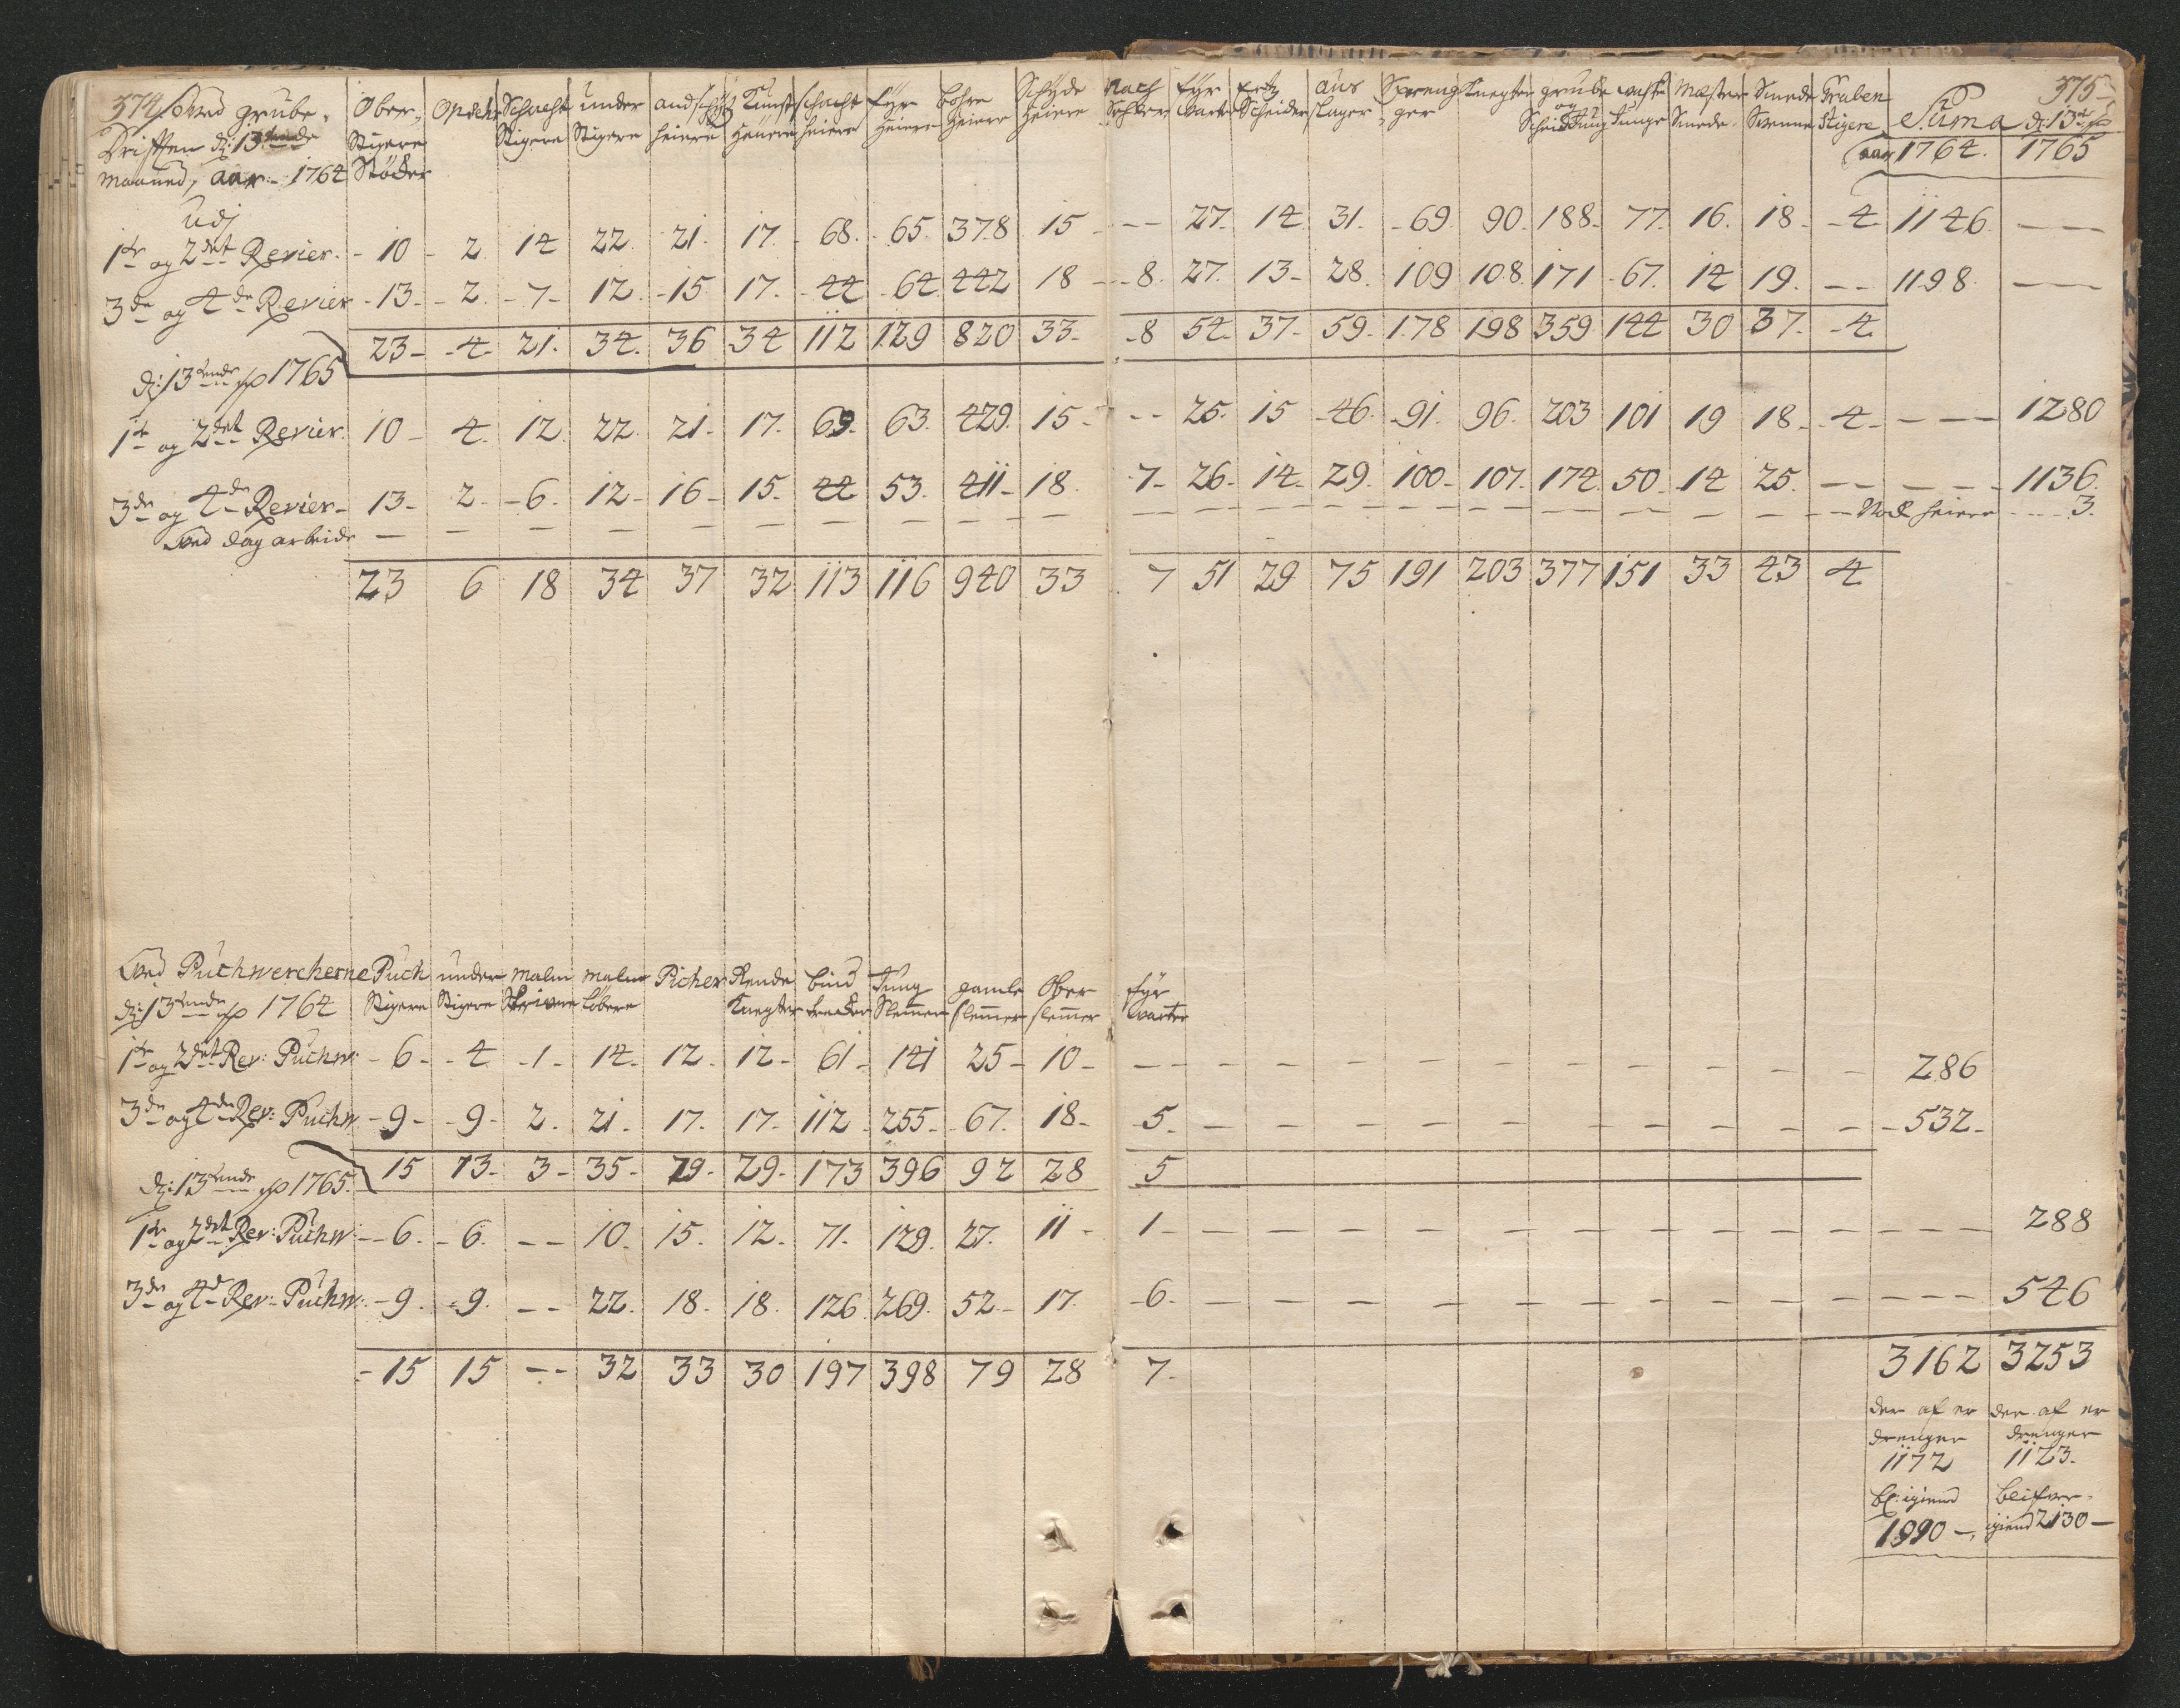 374 Ved grube- Ober- Opseher Schacht under andschytz Kunst schacht fyr bohre Schyde
Driften dj: 13tende Stigere Stigere Stigere heiere heiere heiere heiere heiere heiere
maaned, aar - 1764 Stöcker
udj
1te og 2det Revier. - 10 - 2. 14 22. 21. 17. - 68. - 65. 378. 15 -
3de og 4de Revier - 13. - 2. - 7 - 12. - 15 17. - 44 - 64. 442 18 -
23 - - 4. 21. 34. 36 34 112 129 820 33.
dj: 13tende 1765
1te og 2det Revier. 10 - 4. 12. 22. 21. 17. 69. 63. 429. 15.
3de og 4de Revier - 13 - 2. - 6. 12 - 16 - 15. 44 53. 411 - 18.
Ved dag arbeide — — — — — — — — — — —
23 6 18 34 37 32 113 116 940 33
Ved Puchwercherne Puch under malm malm Picher Rende bind Jung gamle Ober
dj: 13tende 1764 Stigere Stigere Skrivere löbere Knegter Slemmer slemmer slemmer
1te og 2det Rev: Puchw: - 6 - - 4. - 1 - 14 - 12. 12 - 61 - 141 25 - 10 -
3de og 4de Rev: Puchw. - 9 - - 9 - 2. 21. 17. 17. 112. 255. 67. 18 -
15 13. 3 - 35 - 29. 29. 173 396 92 28
dj: 13tende 1765.
1te og 2det Rev: Puchw: - 6. - 6. - - 10. 15. 12. 71. 129. 27. 11 -
3de og 4de Rev: Puchw: - 9. - 9. - - 22. 18. 18. 126. 269. 52 - 17.
- 15 15 - - 32 33 30 197 398 79 28
375
nach fyr ertz aus Spreng Knegter grube vaske Mester Smede Graben Suma dj: 13de
varter Scheider slager ger og Scheide Jung Junge Smede Svenne Stigere
aar 1764. 1765
- - 27. 14. 31. - 69. 90. 188. 77. 16. 18. - 4. 1146. —
- 8. 27. 13 - 28. 109 108. 171 - 67. 14 19. - - 1198. —
- 8 54. 37 - 59 - 178 198 359 144 30 37. - 4.
- - 25. 15 - 46. - 91. 96. 203 101 19 18. - 4. - - - 1280
7 - 26 - 14 - 29. 100 - 107. 174. 50. 14 25. - - - - - 1136.
Nock heiere - - - 3.
7 51 29 75 191 203 377 151 33 43 4
fyr
varter
- - - - - - - - - - - - 286
5. - - - - - - - - - - - 532 -
5
1 - - - - - - - - - - - - - - 288
- 6. - - - - - - - - - - - - - 546
7. 3162 3253
der af er der af er
drenger drenger
1172 1123.
bl: igiend bliver
1990 —, igiend 2130 —